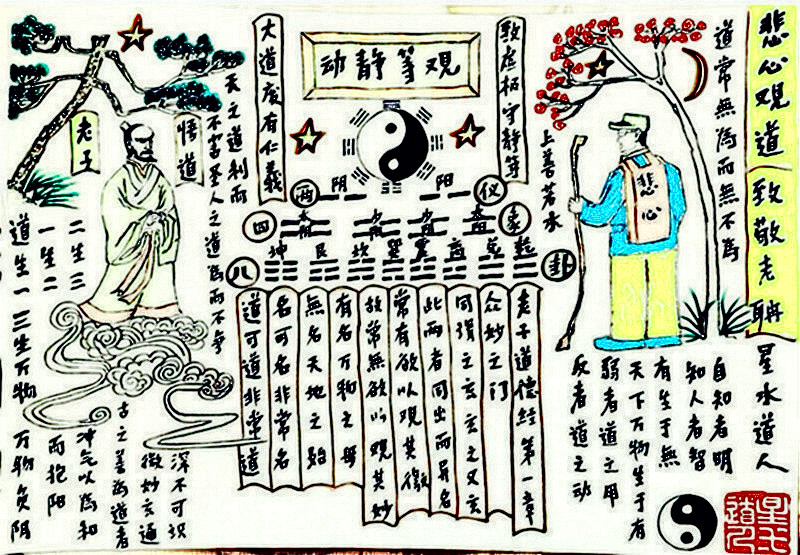 悲心观道 致敬老聃
星水道人
道常無为而無不为
上善若水
悲心
自知者明
知人者智
有生于無
天下万物生于有
弱者道之用
反者道之动
动静等观
致虚极守静等
大道废有仁義
两 阴 阳 仪
四 太阴 少阳 少阴 太阳 象
坤 艮 坎 巽 震 离 兑 乾
八 卦
老子道德经第一章
众妙之门
同谓之玄玄之又玄
此两者同出而异名
常有欲以观其徼
故常無欲以观其妙
有名万物之母
無名天地之始
名可名非常名
道可道非常道
天之道利而
不害圣人之道为而不争
悟道
老子
道生一
一生二
二生三
三生万物
万物负阴
而抱阳
冲气以为和
古之善为道者
微妙玄通
深不可识
星水道人